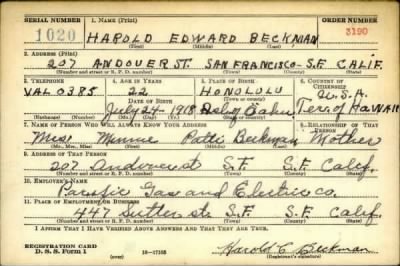 SERIAL NUMBER 1. NAME (Print) ORDER NUMBER
1020 HAROLD EDWARD BECKMAN 3190
(First) (Middle) (Last)
2. ADDRESS (Print)
207 ANDOVER ST. SAN FRANCISCO - S.F. CALIF.
(Number and street or R. F. D. number) (Town) (County) (State)
3. TELEPHONE 4. AGE IN YEARS 5. PLACE OF BIRTH 6. COUNTRY OF CITIZENSHIP
VAL 0385 22 HONOLULU U.S.A.
DATE OF BIRTH
July 24 - 1918 Isl of Oahu Terr. of HAWAII
(Exchange) (Number) (Mo.) (Day) (Yr.) (Town or county) (State or country)
7. NAME OF PERSON WHO WILL ALWAYS KNOW YOUR ADDRESS 8. RELATIONSHIP OF THAT PERSON
Mrs Minnie Patti Beckman Mother
(Mr., Mrs., Miss) (First) (Middle) (Last)
9. ADDRESS OF THAT PERSON
207 Andover st S.F. S.F. Calif.
(Number and street or R. F. D. number) (Town) (County) (State)
10. EMPLOYER'S NAME
Pacific Gas and Electric co.
11. PLACE OF EMPLOYMENT OR BUSINESS
447 Sutter st. S.F. S.F. Calif.
(Number and street or R. F. D. number) (Town) (County) (State)
I AFFIRM THAT I HAVE VERIFIED ABOVE ANSWERS AND THAT THEY ARE TRUE.
REGISTRATION CARD
D. S. S. Form 1 (over) 16-17105 Harold E. Beckman
(Registrant's signature)